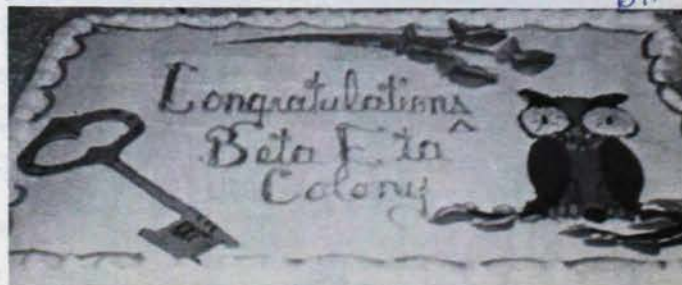 Congratulations
Beta Eta
Colony